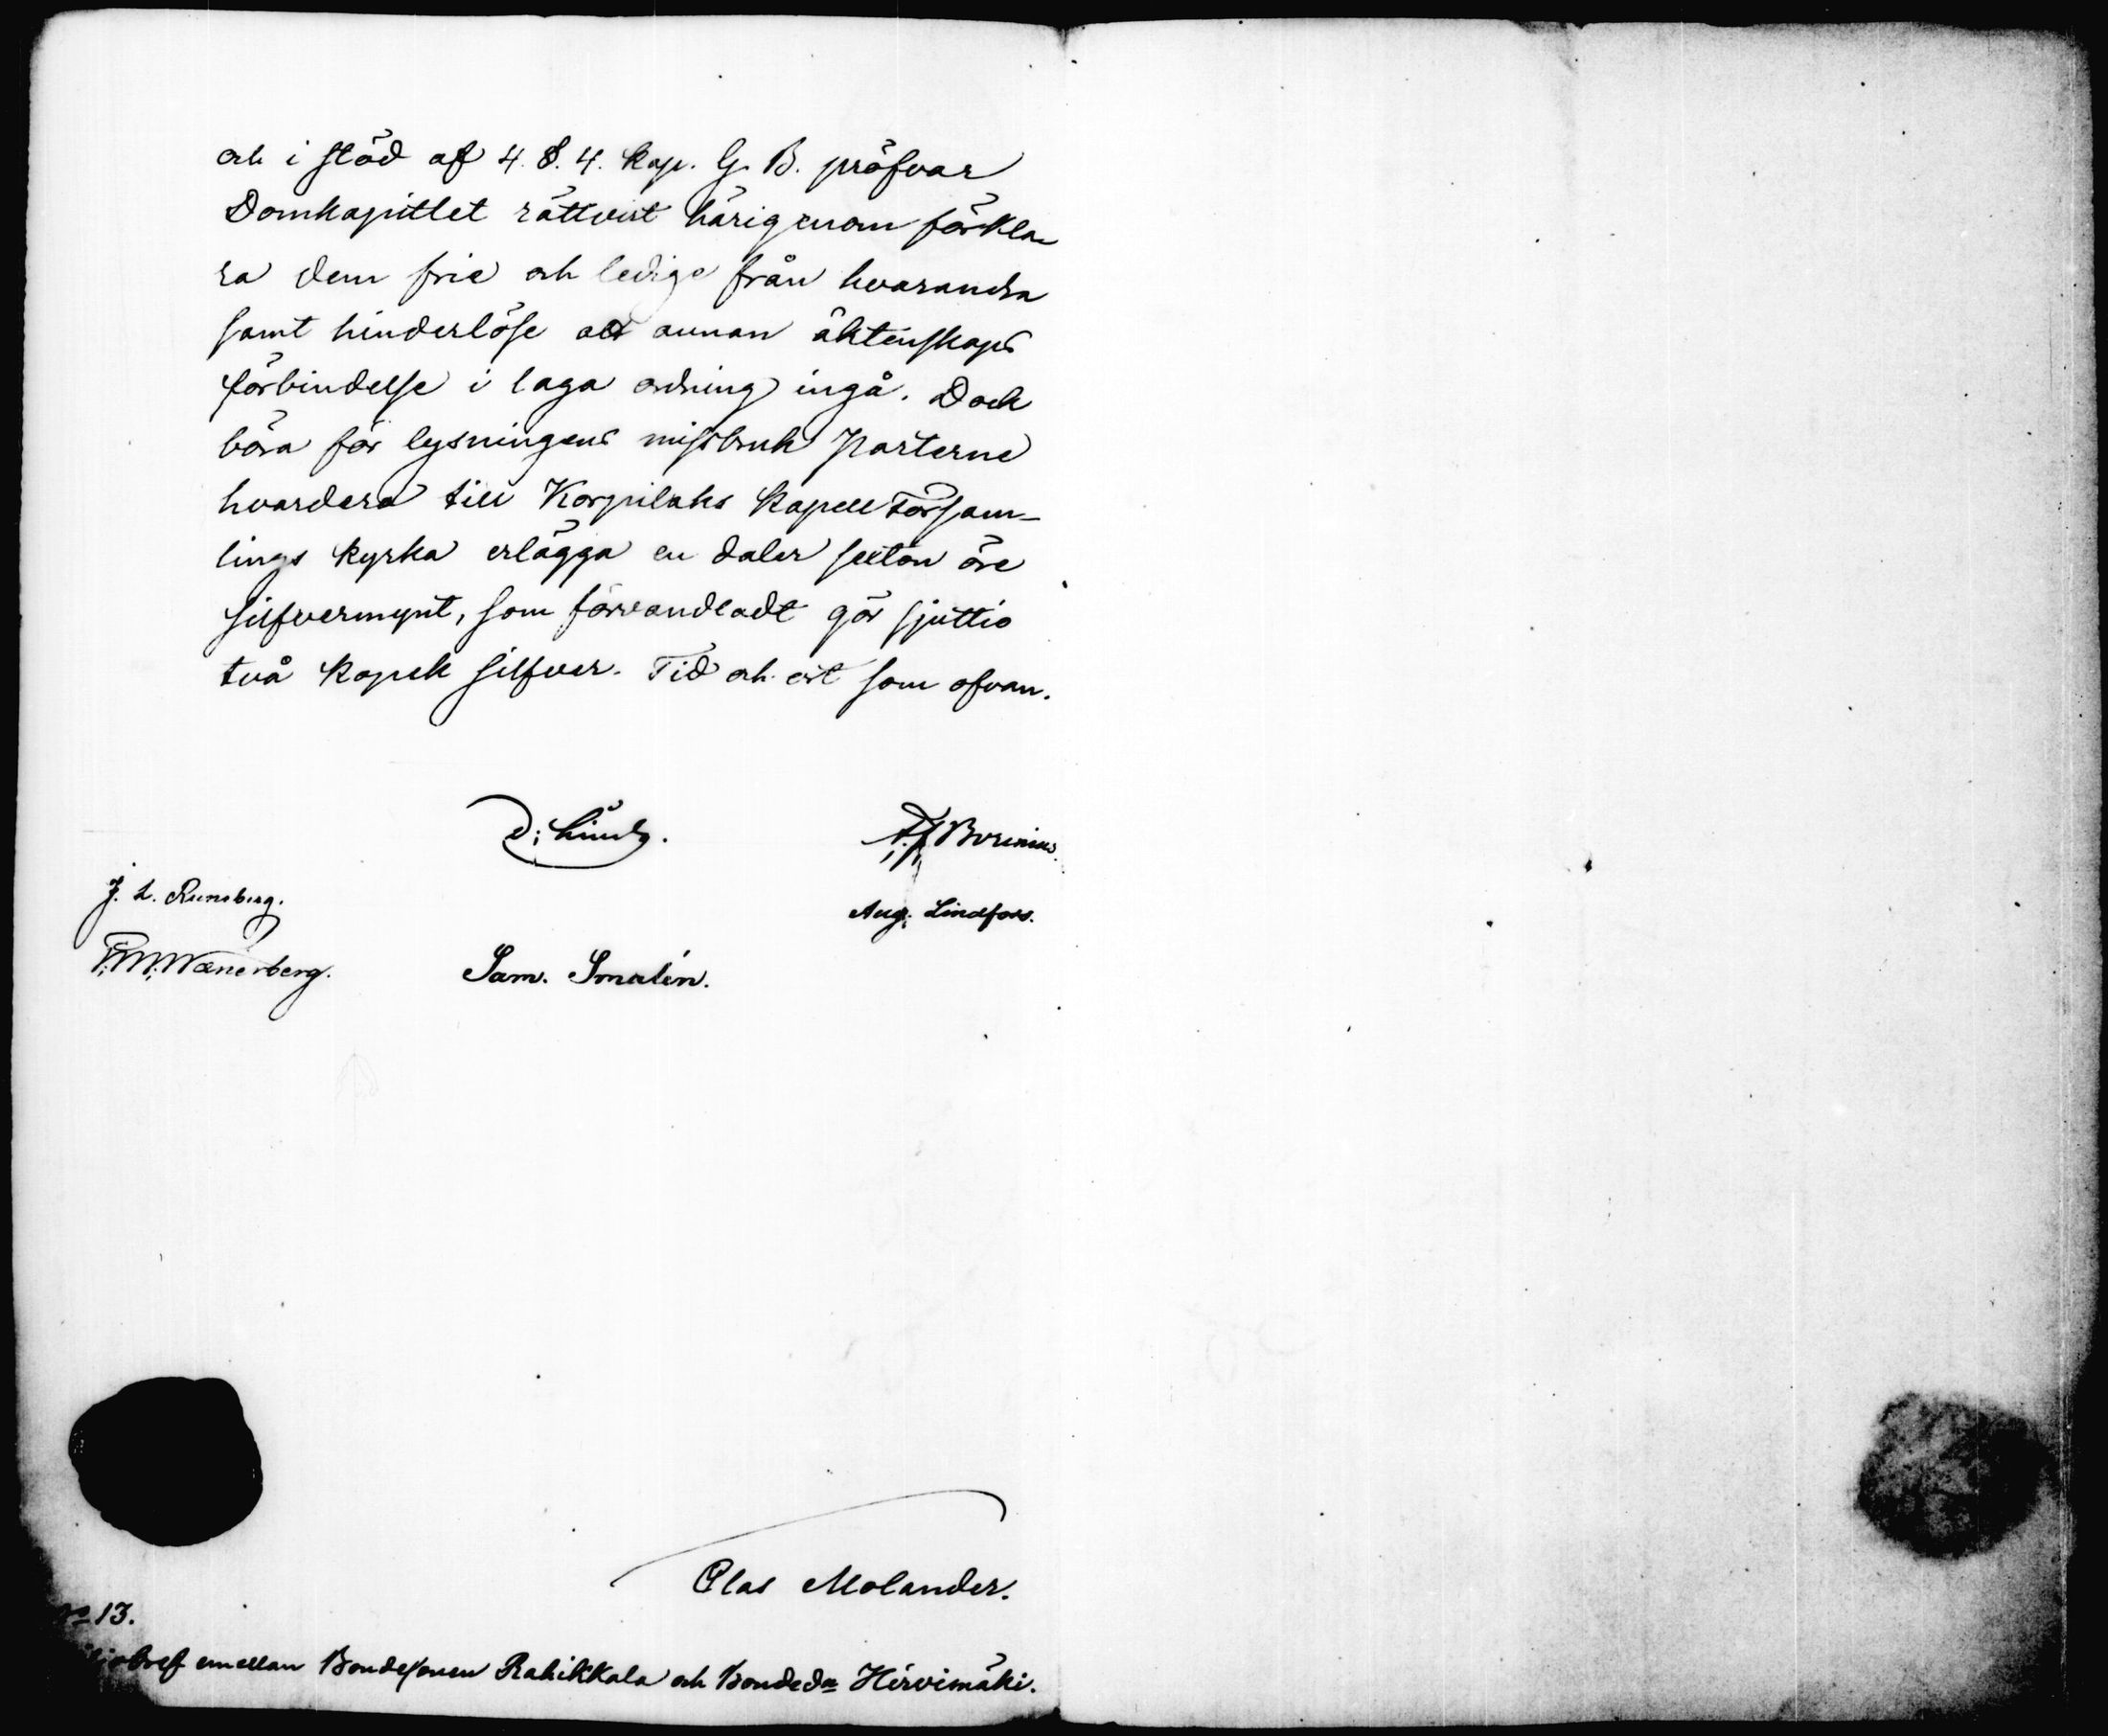 och i stöd af 4. §. 4. Kap. G. B. pröfvar
Domkapitlet rättvist härigenom förkla-
ra dem frie och ledige från hvarandra
samt hinderlöse att annan äktenskaps
förbindelse i laga ordning ingå. Dock
böra för lysningens missbruk Parterne
hvardera till Korpilaks Kapell Försam-
lings kyrka erlägga en daler sexton öre
silfvermynt, som förvandladt gör sjuttio
två kopek silfver. Tid och ort som ofvan.
A. J. Borenius.
J. L. Runeberg.
Aug. Lindfors.
F. M. Wænerberg.
Sam. Smalén.
Clas Molander.
No 13.
bref emellan Bondesonen Rahikkala och Bondeda Hirvimäki.